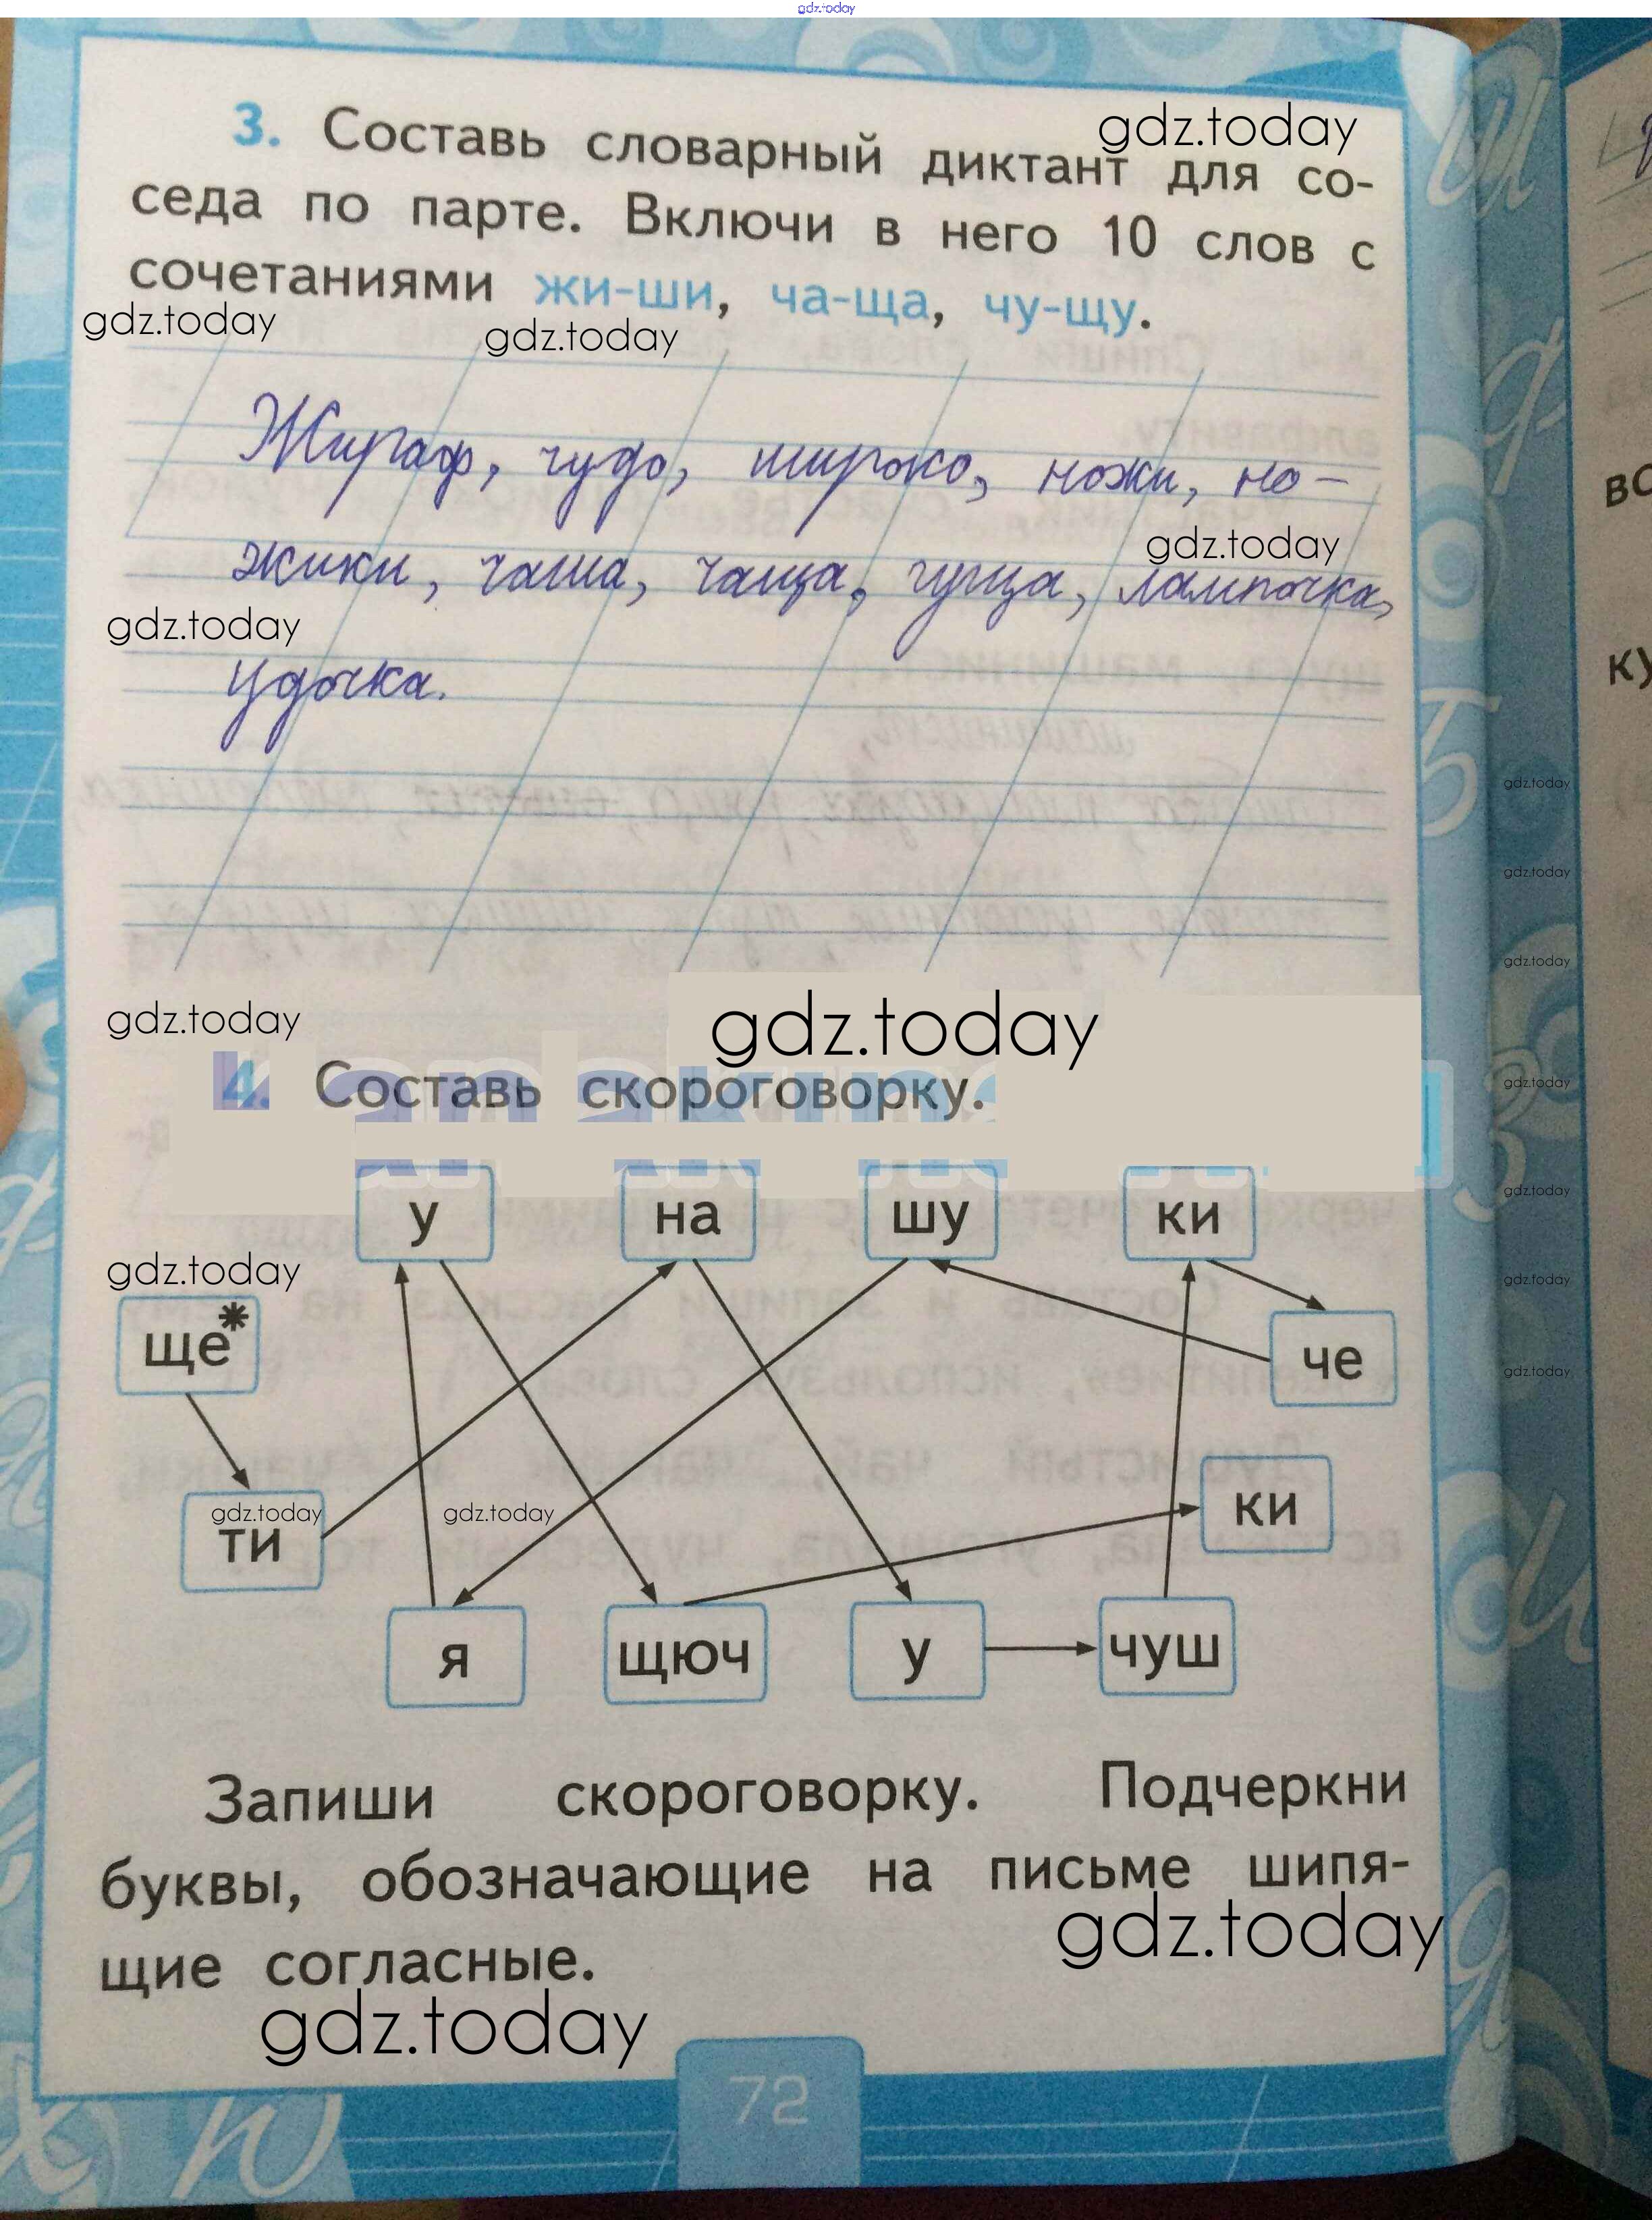 gdz.today
3. Составь словарный диктант для со-
gdz.today
седа по парте. Включи в него 10 слов с
сочетаниями жи-ши, ча-ща, чу-щу.
gdz.today
gdz.today
Жираф, чудо, широко, ножи, но-
gdz.today
жики, чаша, чаща, лампочка,
gdz.today
Удочка.
gdz.today
gdz.today
gdz.today
gdz.today
gdz.today
4. Составь скороговорку.
gdz.today
gdz.today
у на шу ки
gdz.today
gdz.today
ще*
че
gdz.today
ки
gdz.today
gdz.today
ти
я щюч у чуш
Запиши скороговорку. Подчеркни
буквы, обозначающие на письме шипя-
gdz.today
щие согласные.
gdz.today
72
вс
ку